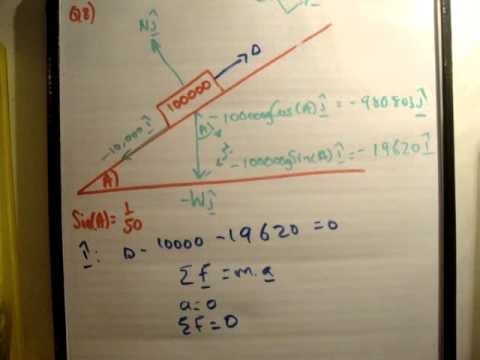 Q8)
Nĵ
D
100000
-10,000 î
A
-100000gCos(A)ĵ = -980803ĵ
-100000gSin(A)î = -19620 î
A)
-Wĵ
Sin(A) = 1/50
î: D - 10000 - 19620 = 0
Σf = m.a
a = 0
ΣF = 0